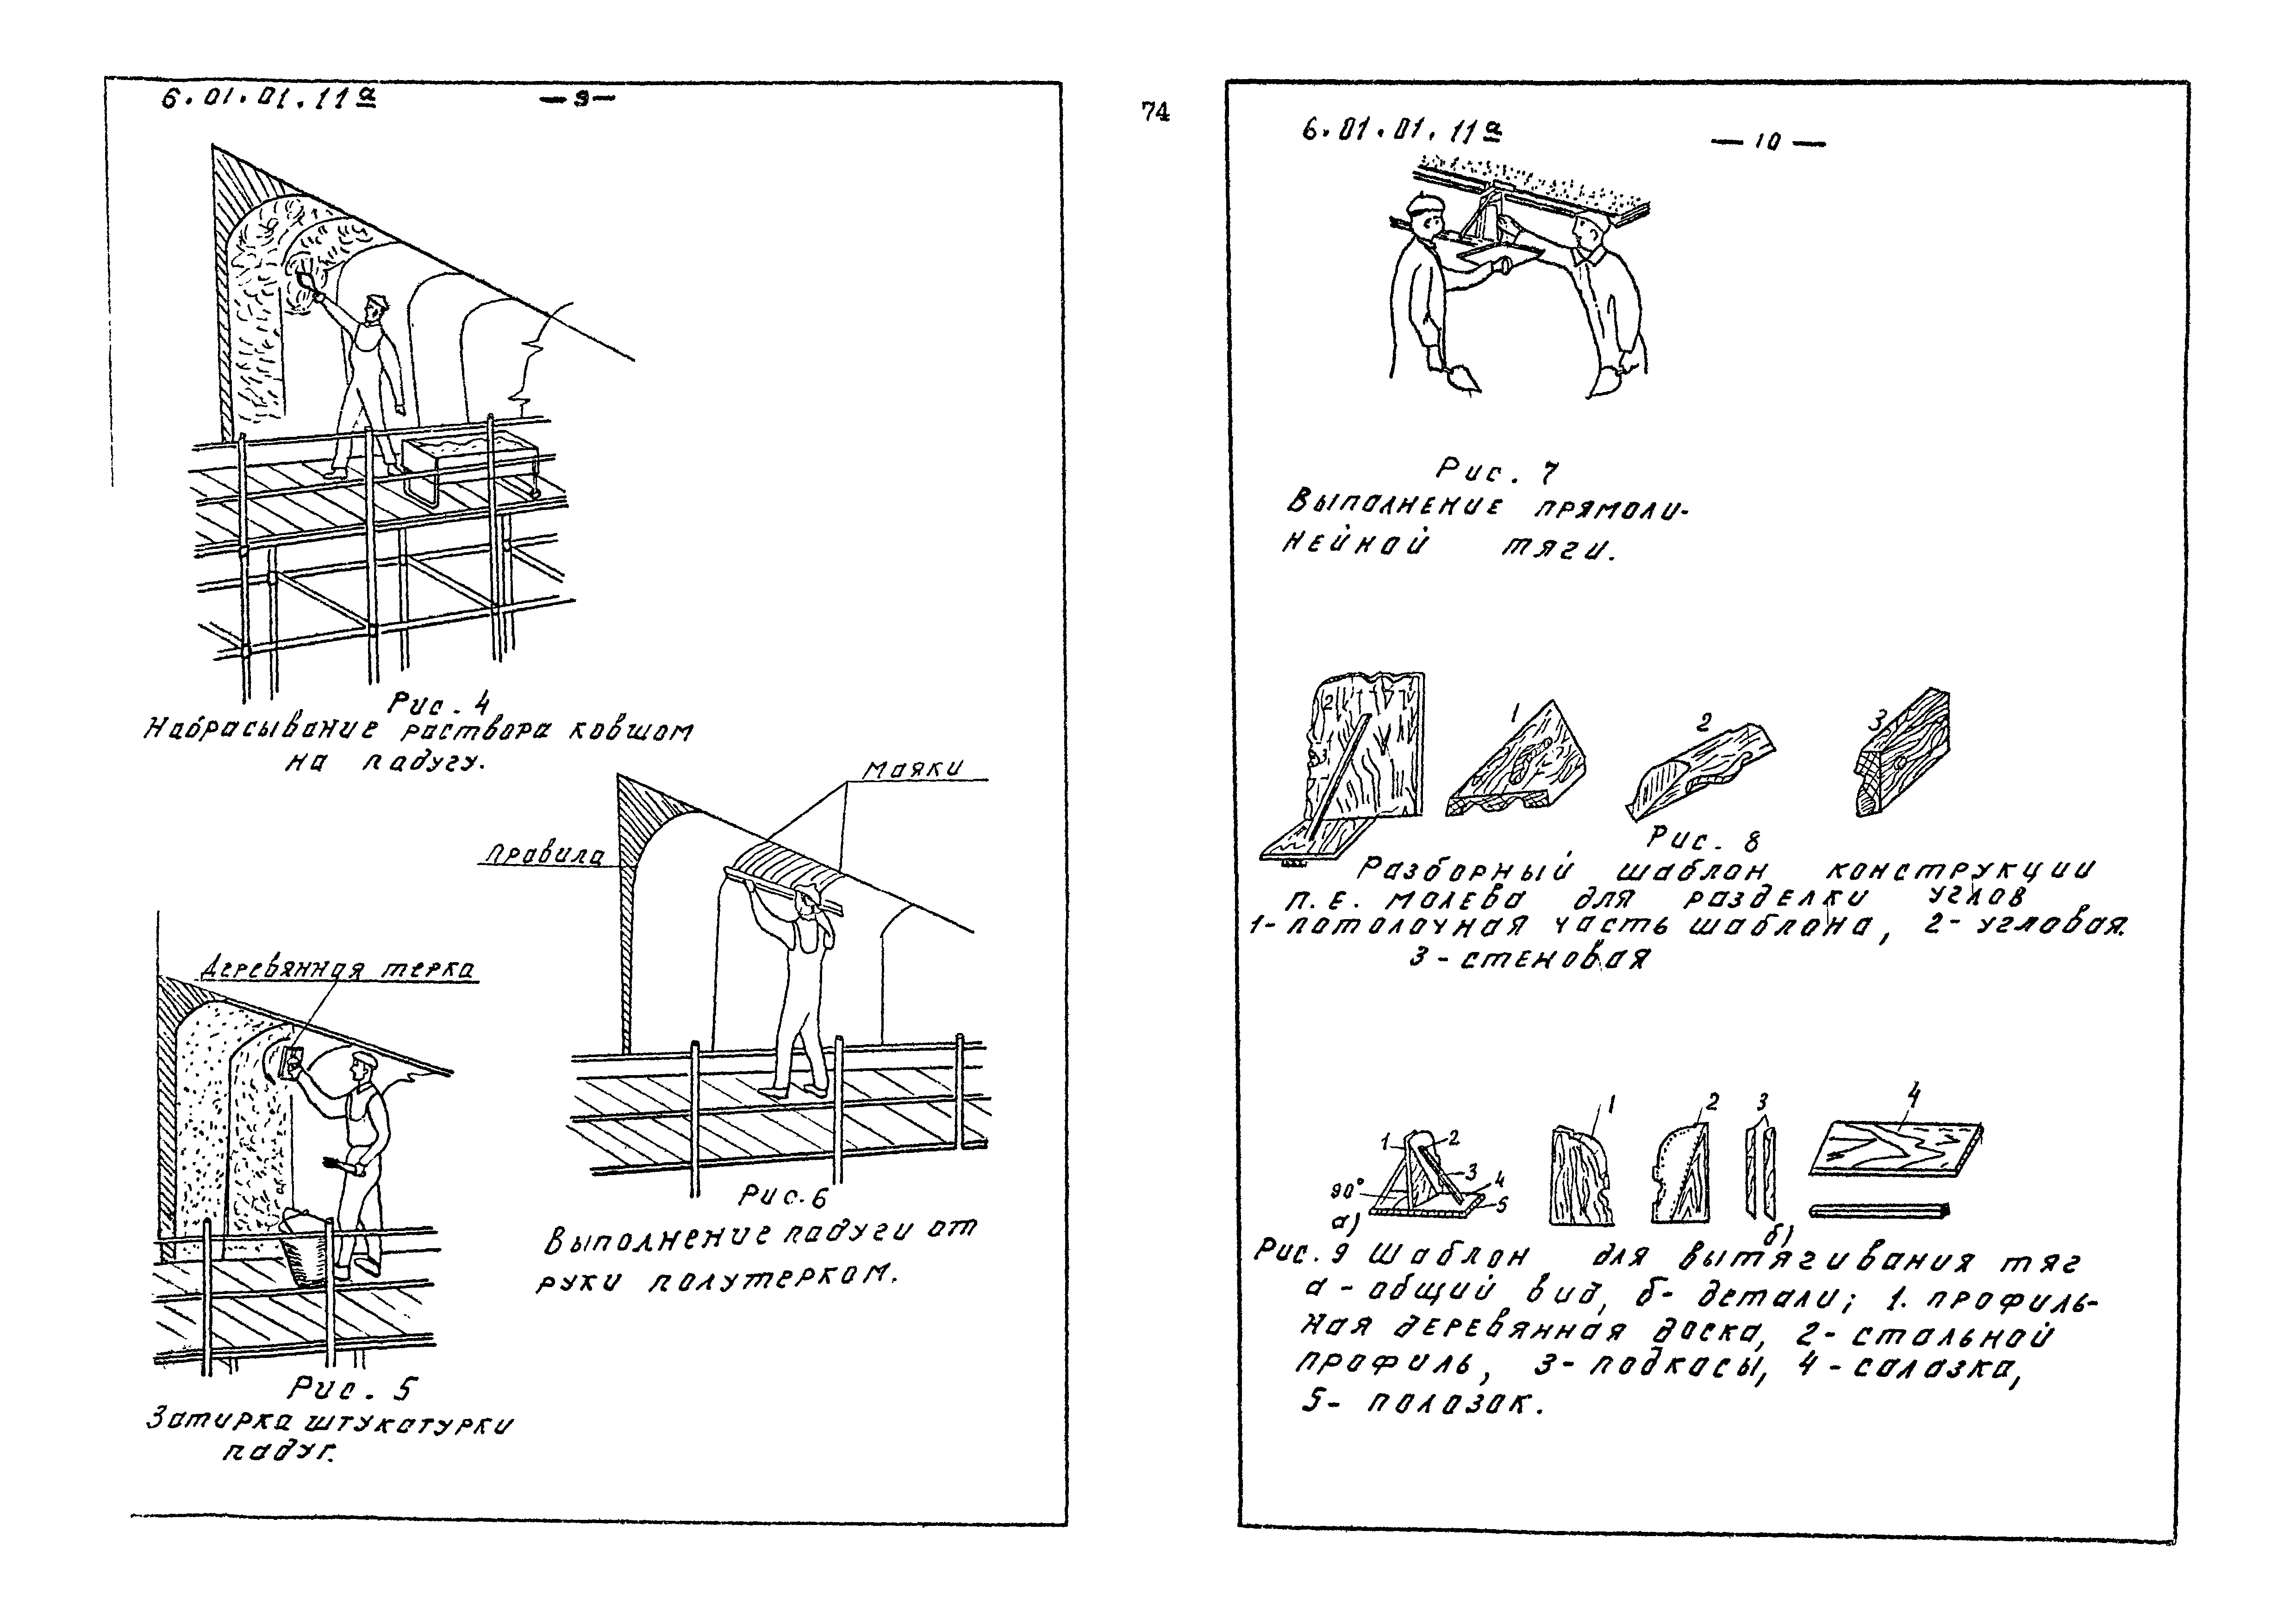 6.01.01.11а
— 9 —
Рис. 4
Набрасывание раствора ковшом
на падугу.
маяки
правила
Деревянная терка
Рис. 6
Выполнение падуги от
руки полутерком.
Рис. 5
Затирка штукатурки
падуг.
74
6.01.01.11а
— 10 —
Рис. 7
Выполнение прямоли-
нейной тяги.
2
3
1
2
3
Рис. 8
Разборный шаблон конструкции
П.Е. Молева для разделки углов
1- потолочная часть шаблона, 2- угловая.
3 - стеновая
1
2
3
4
5
90°
а)
1
2
3
4
б)
Рис. 9 Шаблон для вытягивания тяг
а - общий вид, б- детали; 1. профиль-
ная деревянная доска, 2- стальной
профиль, 3- подкосы, 4 - салазка,
5- полозок.